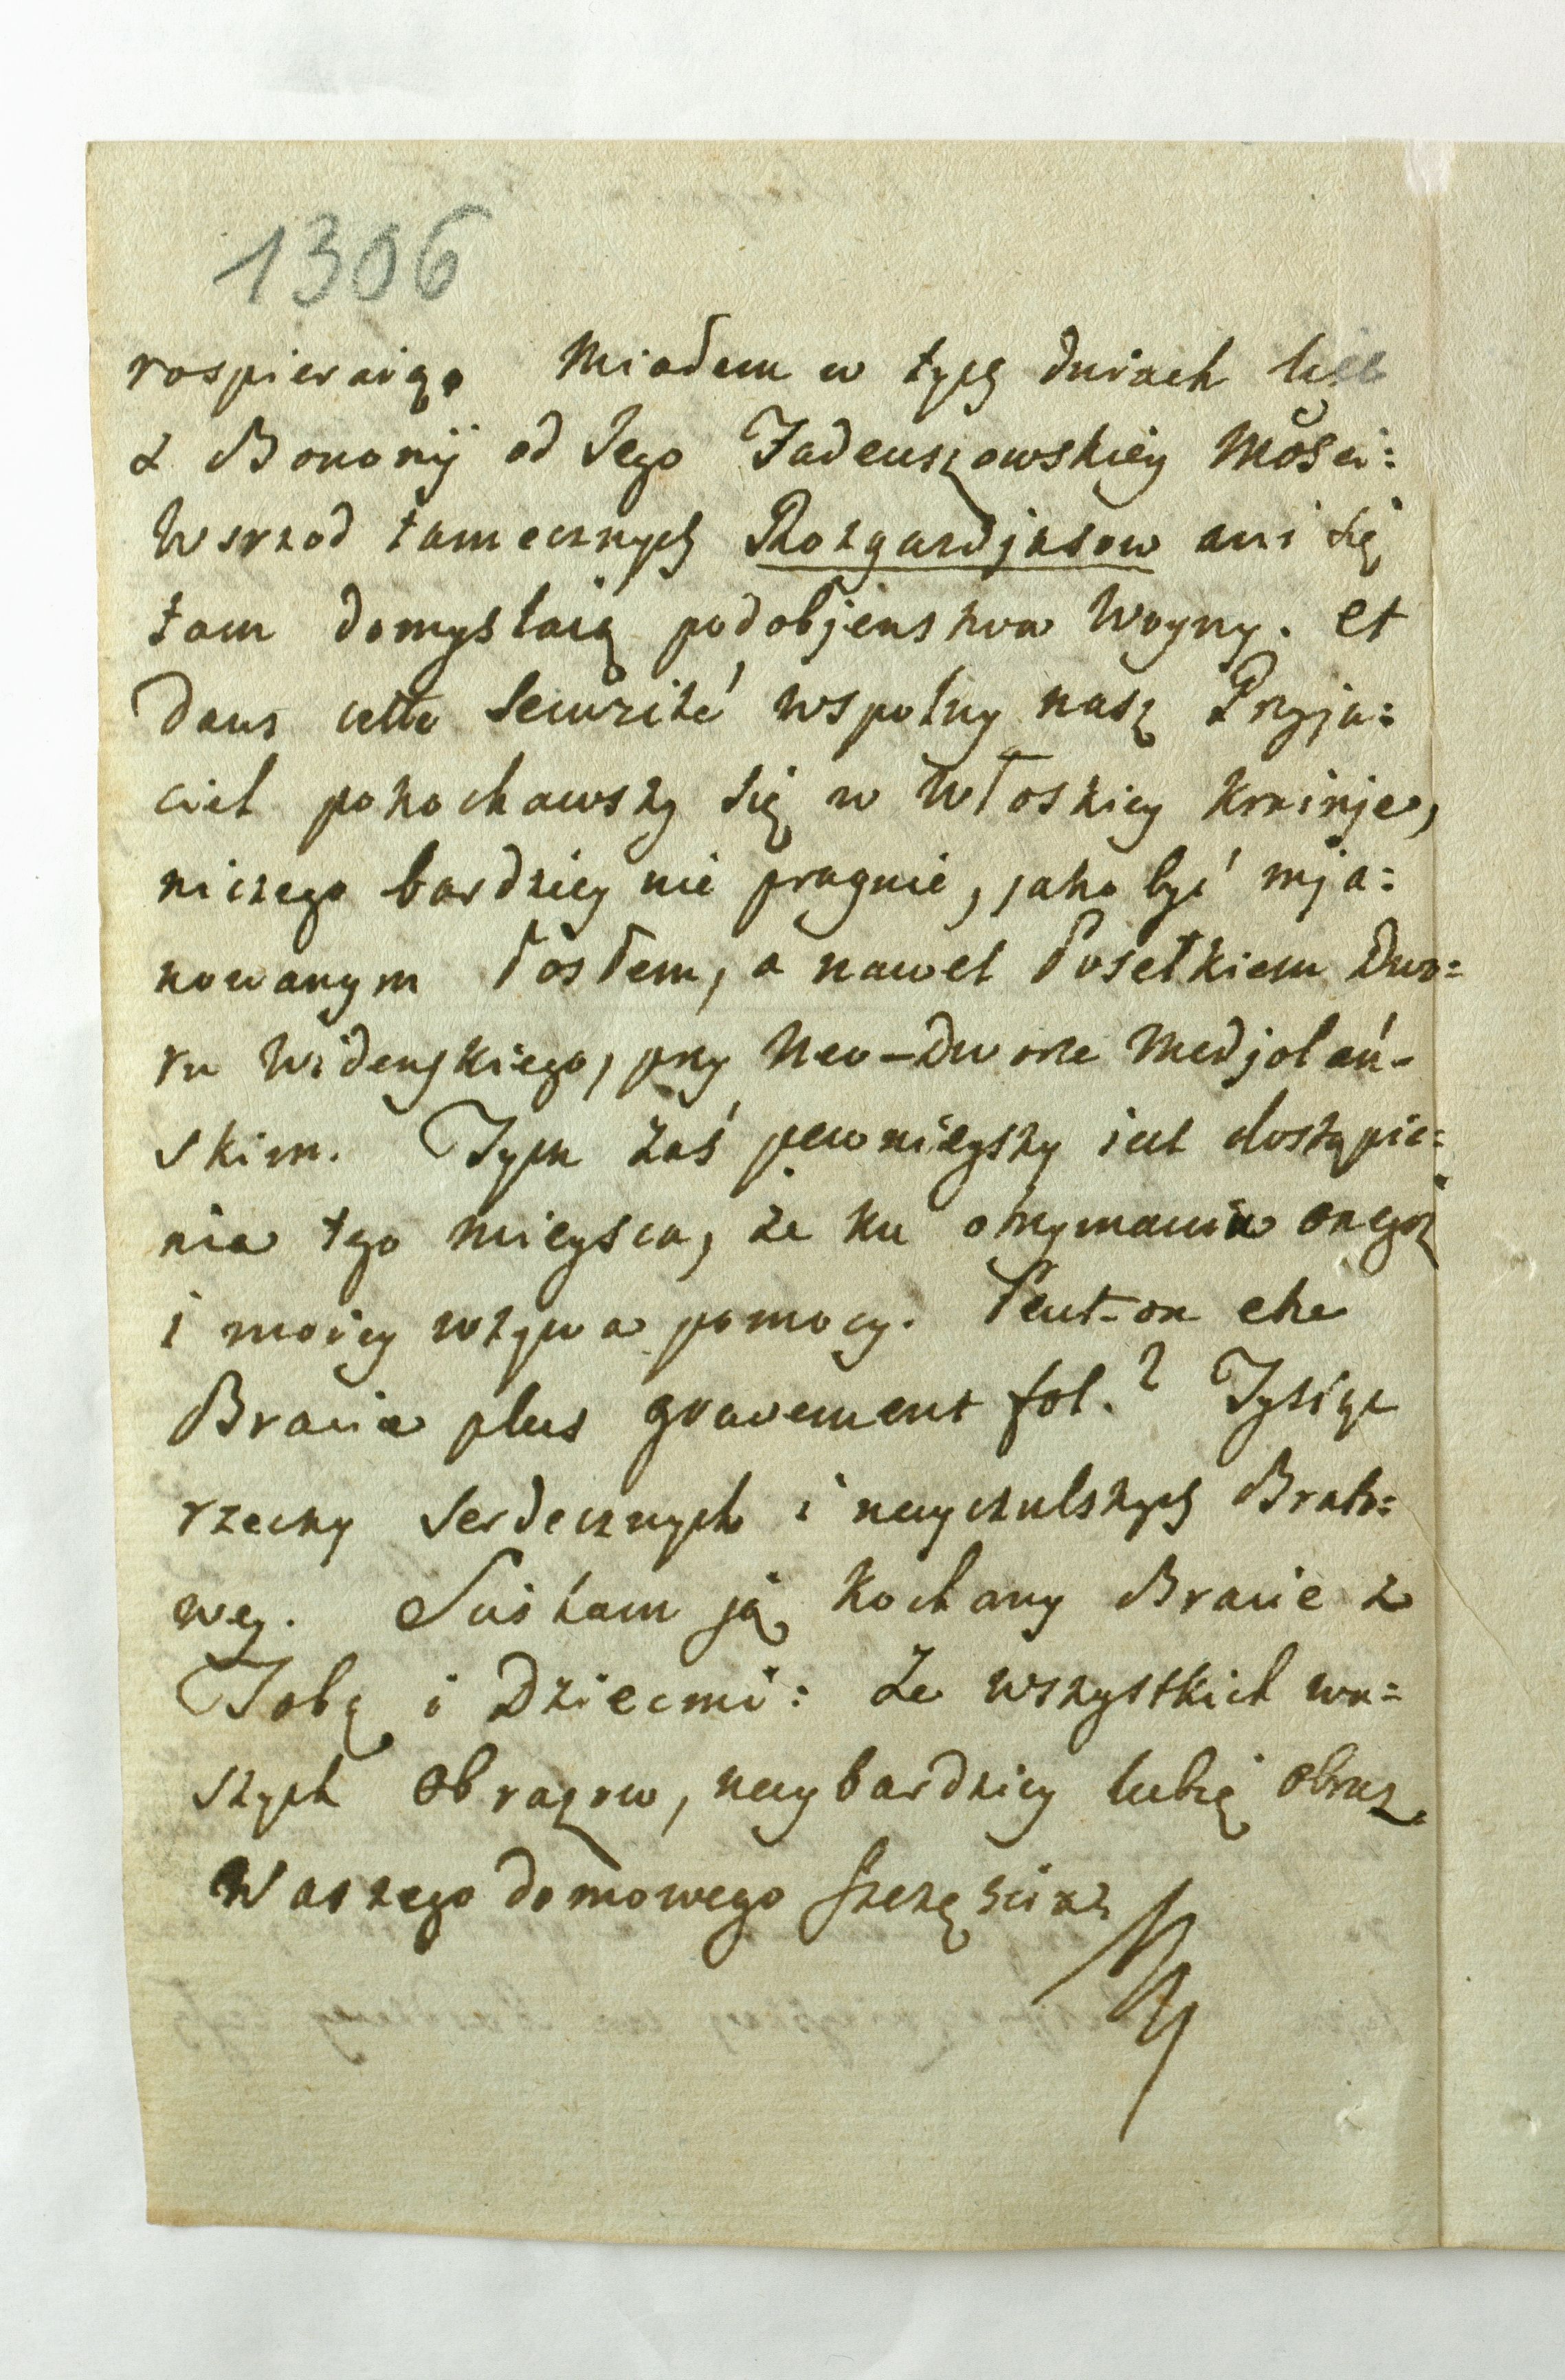 1306
rospieraią. Miałem w tych dniach list
z Bononÿ od Jego Tadeuszowskiey Mości:
Wsrzod tamecznych Rozgardjaszow ani się
tam domyslaią podobjenstwa Woyny. et
dans cette Securité wspolny nasz Przyja:
ciel pokochawszy się w Włoskiey Krainje,
niczego bardziey nie pragnie, jako być mja:
nowanym Posłem, a nawet Posełkiem Dwo=
ru Widenskiego, przy Neo-Dworze Medjolań-
skim. Tym zaś pewnieyszy iest dostąpie=
nia tego mieysca, że ku otrzymaniu onegoż
i moiey wzywa pomocy. Peut-on etre
Bracie plus gravement fol.? Tysiąc
rzeczy serdecznych i nayczulszych Brato=
wey. Sciskam ją Kochany Bracie z
Tobą i Dziecmi: Ze wszystkich wa=
szych Obrazow, naybardziey lubię obraz
Waszego domowego szczęscia.